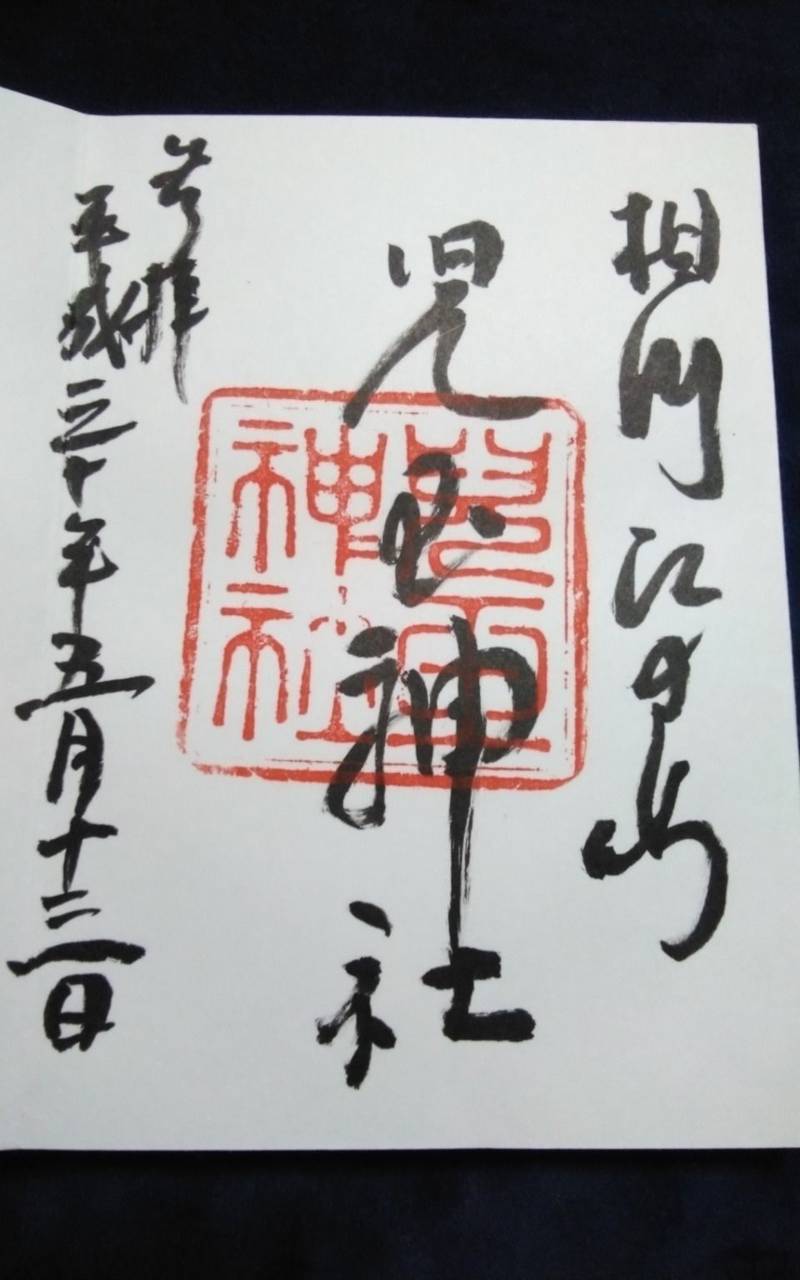 相州江の島
児玉神社
兒玉神社
参拝
平成三十年五月十三日